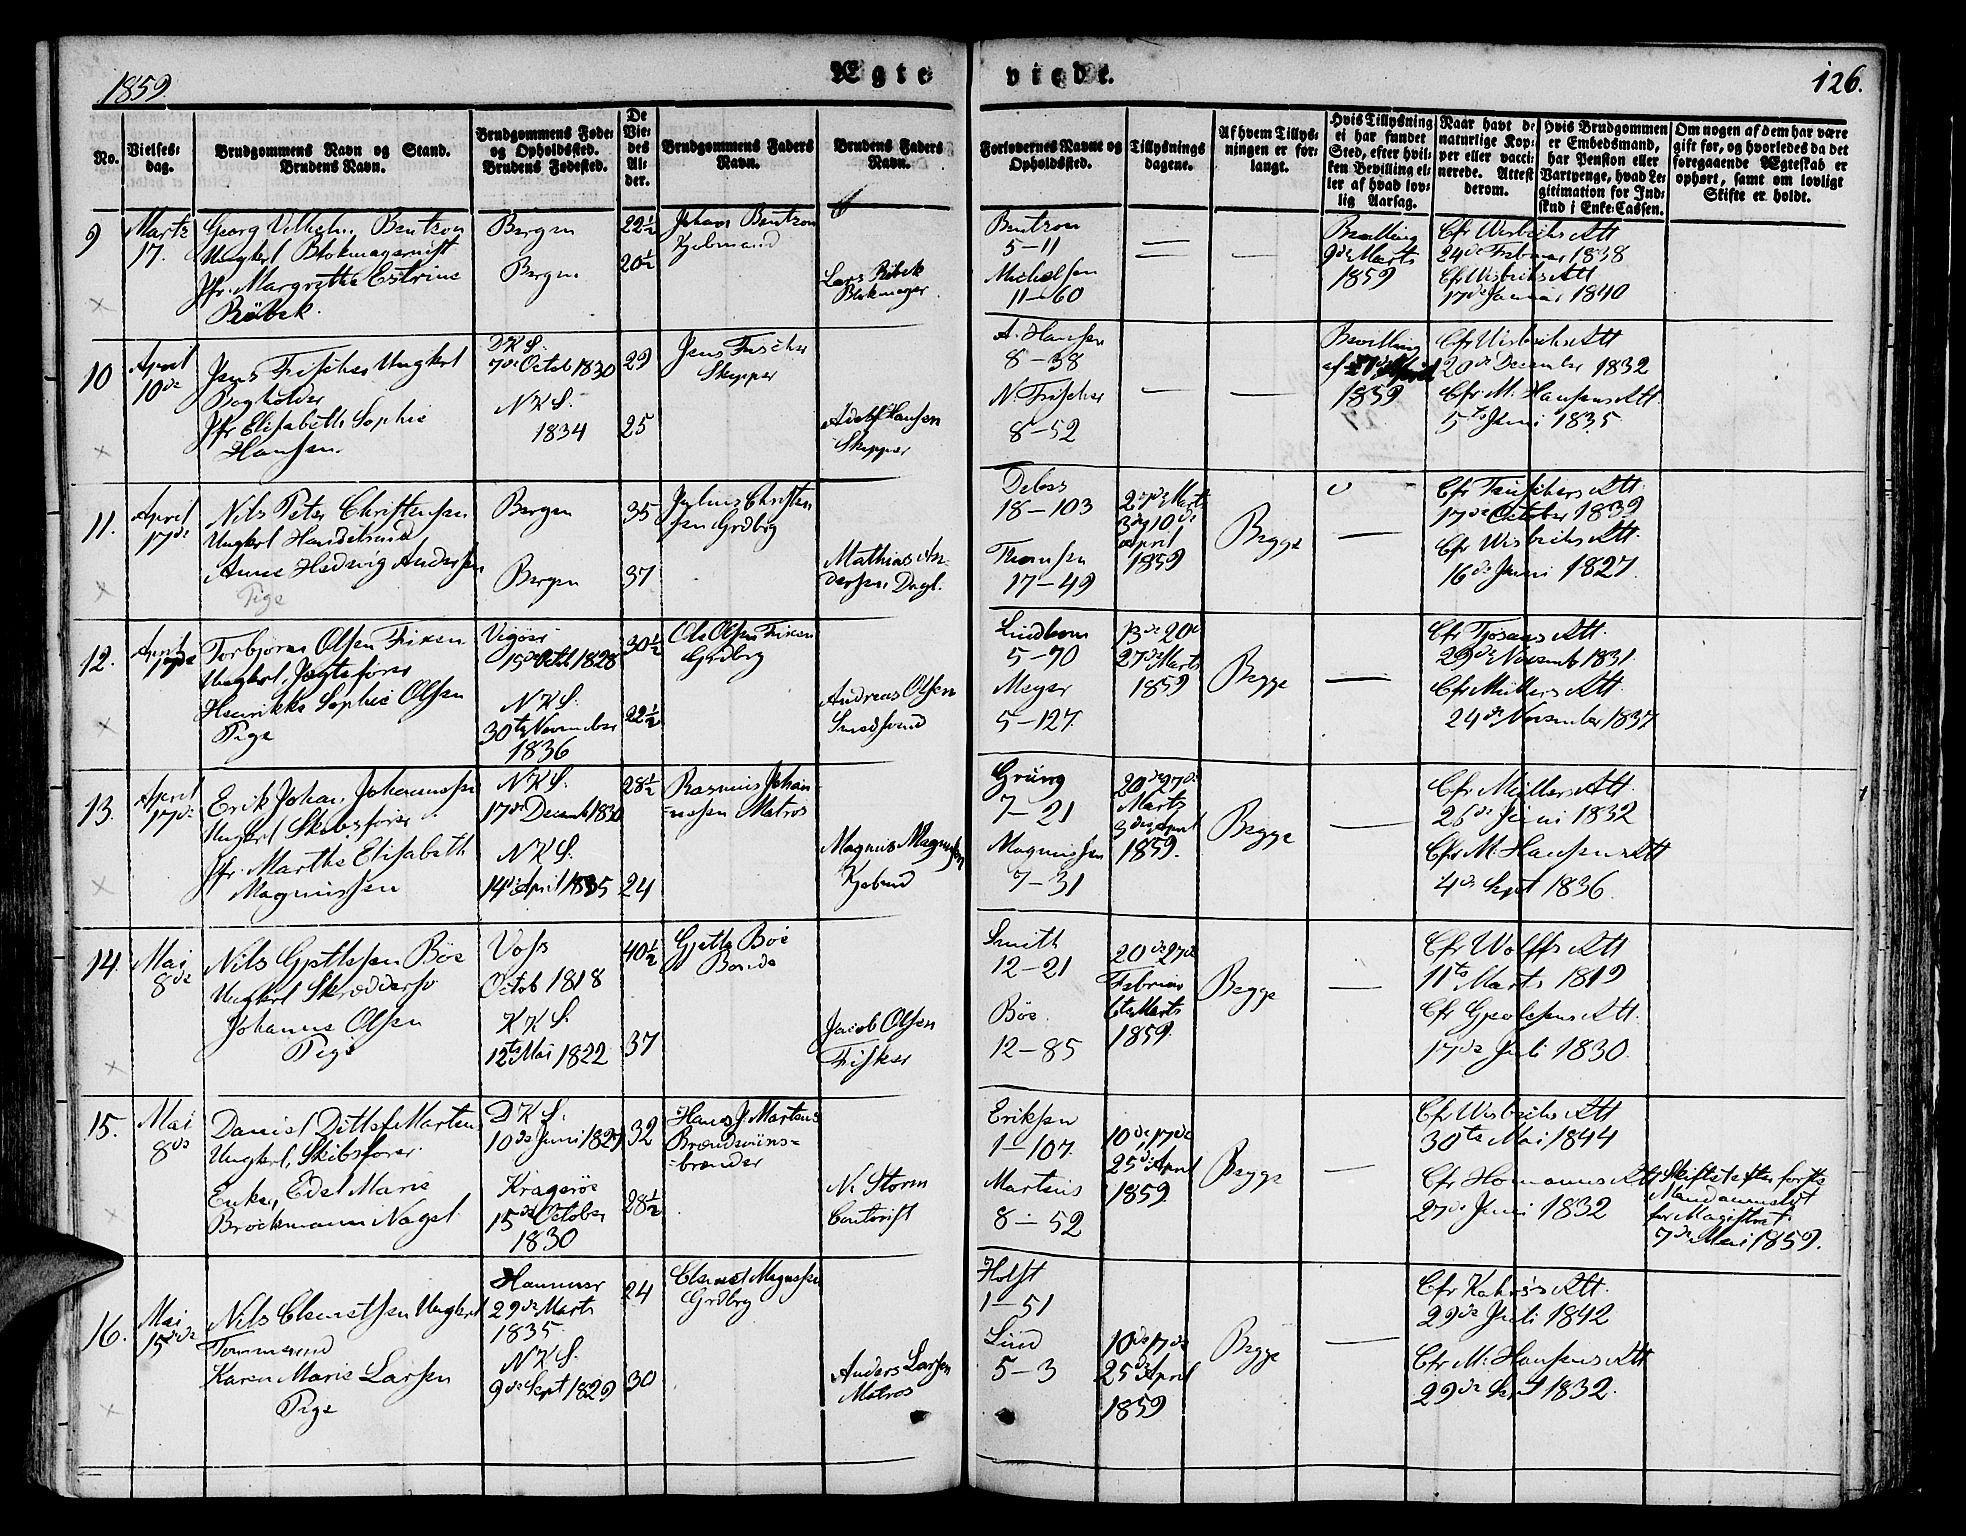 1859.
Ægte
viede.
126.
No.
Vielses-
dag.
Brudgommens Navn og Stand.
Brudens Navn.
Brudgommens Føde-
og Opholdssted.
Brudens Fødested.
De
Vie-
des
Al-
der.
Brudgommens Faders
Navn.
Brudens Faders
Navn.
Forlovernes Navne og
Opholdssted.
Tillysnings
dagene.
Af hvem Tillys-
ningen er for-
langt.
Hvis Tillysning
ei har fundet
Sted, efter hvil-
ken Bevilling el-
ler af hvad lov-
lig Aarsag.
Naar havt de
naturlige Kop-
per eller vacci-
nerede. Attest
derom.
Hvis Brudgommen
er Embedsmand,
har Pension eller
Vartpenge, hvad Le-
gitimation for Ind-
skud i Enke-Cassen.
Om nogen af dem har være
gift før, og hvorledes da det
foregaaende Ægteskab er
ophørt, samt om lovligt
Skifte er holdt.
9
Marts
17.
Georg Vilhelm Bentzon
Ungkarl Blokmagersvist
Jfr. Margrethe Estrine
Bøbek.
Bergen
Bergen
22½
20½
Johan Bentzon
Lars Bøbek
Blokmager
Bentzon
5-11
Michelsen
11-60
Bevilling
9de Marts
1859
Cfr Wisbechs Att
24de Februar 1838
Cfr Wisbechs Att.
17de Januar 1840
10
April
10de
Jens Fischer Ungkarl
Bogholder
Jfr Elisabeth Sophie
Hansen.
DKS.
7de Octob 1830
NKS.
1834
29
25
Jens Fischer
Skipper
Adolf Hansen
Skipper
A. Hansen
8-38
N. Fischer
8-52
Bevilling
af
1859
Cfr Wisbechs Att
20de December 1832
Cfr M. Hansens Att.
5te Juni 1835.
11.
April
17de
Nils Peter Christensen
Ungkarl Handelsmd
Anne Hedevig Andersen
Pige
Bergen
Bergen
35
37
Julius Christen
sen Grdbrg
Mathias An-
dersen Dagl.
Debes
18-103
Thomsen
17-49
27de Marts
3de 10de
April
1859
Begge
17de October 1839
Cfr Wisbechs Att.
16de Juni 1827.
12.
April
17de
Torbjørn Olsen Fixen
Ungkarl, Jægtefører
Henrikke Sophie Olsen
Pige
Vigøer
15de Octb 1828
NKS.
30te November
1836
30½
22½
Ole Olsen Fixen
Grdbrg
Andreas Olsen
Smedsvend
Lindbom
5-70
Meyer
5-127.
13de 20de
27de Marts
1859
Begge
Cfr Tjosaas Att.
29de Novemb 1831.
Cfr Müllers Att.
24de November 1837
13.
April
17de
Erik Johan Johannesen
Ungkarl Skibsfører
Jfr. Marthe Elisabeth
Magnussen
NKS.
17de Decemb 1830
NKS.
14de April 1835
28½
24
Rasmus Johan-
nesen Matros
Magnus Magnussen
Grüng
7-21
Magnussen
7-31
20de 27de
Marts
3de April
1859.
Begge
Cfr Müllers Att.
26de Juni 1832
Cfr M. Hansens Att
4de Sept 1836.
14.
Mai
8de
Nils Gjettesen Bøe
Ungkarl Skræddersv
Johanne Olsen
Pige
Voss
Octob 1818
KKS.
12te Mai 1822
40½
37
Gjette Bøe
Bonde
Jacob Olsen
Fisker
Smith
12-21
Bøe.
12-85
20de 27de
Februar
6te Marts
1859.
Begge
Cfr Wolffs Att
11te Marts 1819
17de Juli 1830.
15.
Mai
8de
Daniel Ditlef Martens
Ungkarl, Skibsfører
Enke, Edel Marie
Brockmann Nagel
DKS.
10de Juni 1827
Kragerøe
15de October
1830
32
28½
Hans J. Martens
Brændeviins-
-brænder
N. Storm
Contorist
Eriksen
1-107.
Martens
8-52
10de 17de
25de April
1859.
Begge
Cfr Wisbechs Att
30te Mai 1844
Cfr Homanns Att
27de Juni 1832
for Magistrat
7de Mai 1859.
16.
Mai
15de
Nils Clemetsen Ungkarl
Tømmermd
Karen Marie Larsen
Pige
Hammer
29de Marts
1835.
NKS.
9de Sept 1829
24
30
Clemet Magnussen
Grdbrg
Anders Larsen
Matros
Holst
1-51
Lund
5-3
10de 17de
25de April
1859
Begge
Cfr Kahrs's Att.
29de Juli 1842
Cfr M. Hansens Att
29de Sept 1832.